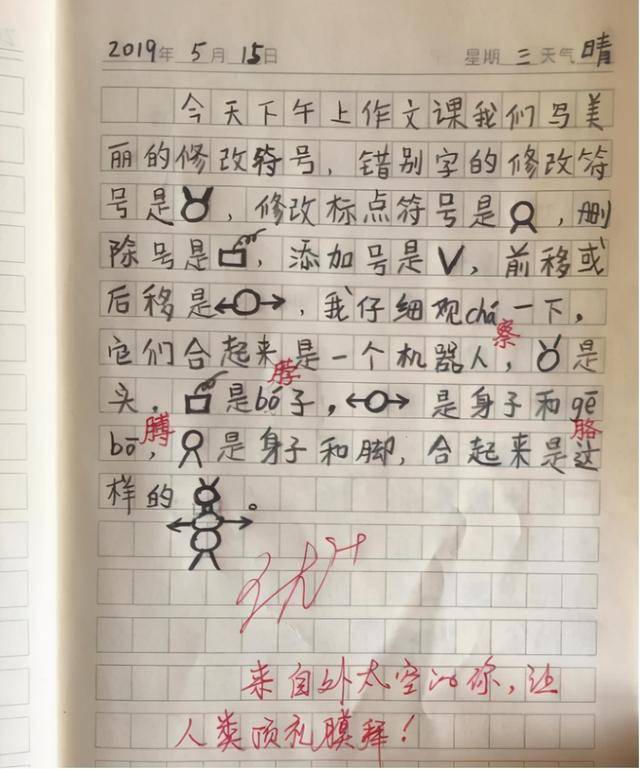 2019年 5月 15日 星期 三 天气 晴
今天下午上作文课我们写美
丽的修改符号，错别字的修改符
号是，修改标点符号是，删
除号是，添加号是∨，前移或
后移是，我仔细观chá一下，
察
它们合起来是一个机器人，是
脖
头，是bó子，是身子和gē
膊 胳
bō，是身子和脚，合起来是这
样的。
优++
来自外太空的你，让
人类顶礼膜拜！